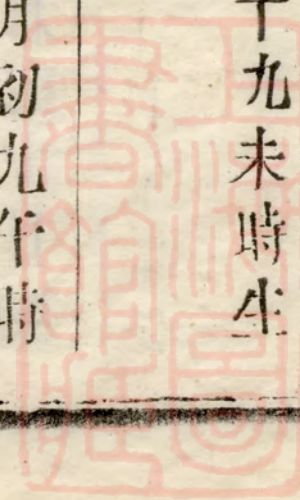 十九未時生
月初九午時